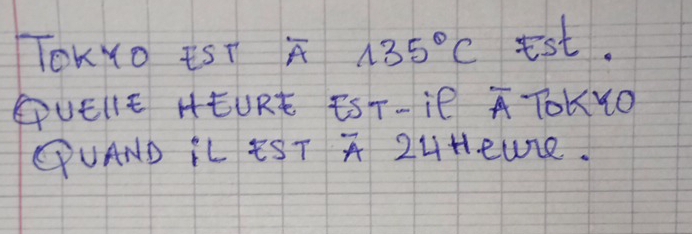 TOKYO EST Ā 135°C Est.
QUELLE HEURE EST-il Ā TOKYO
QUAND iL EST Ā 24Heure.